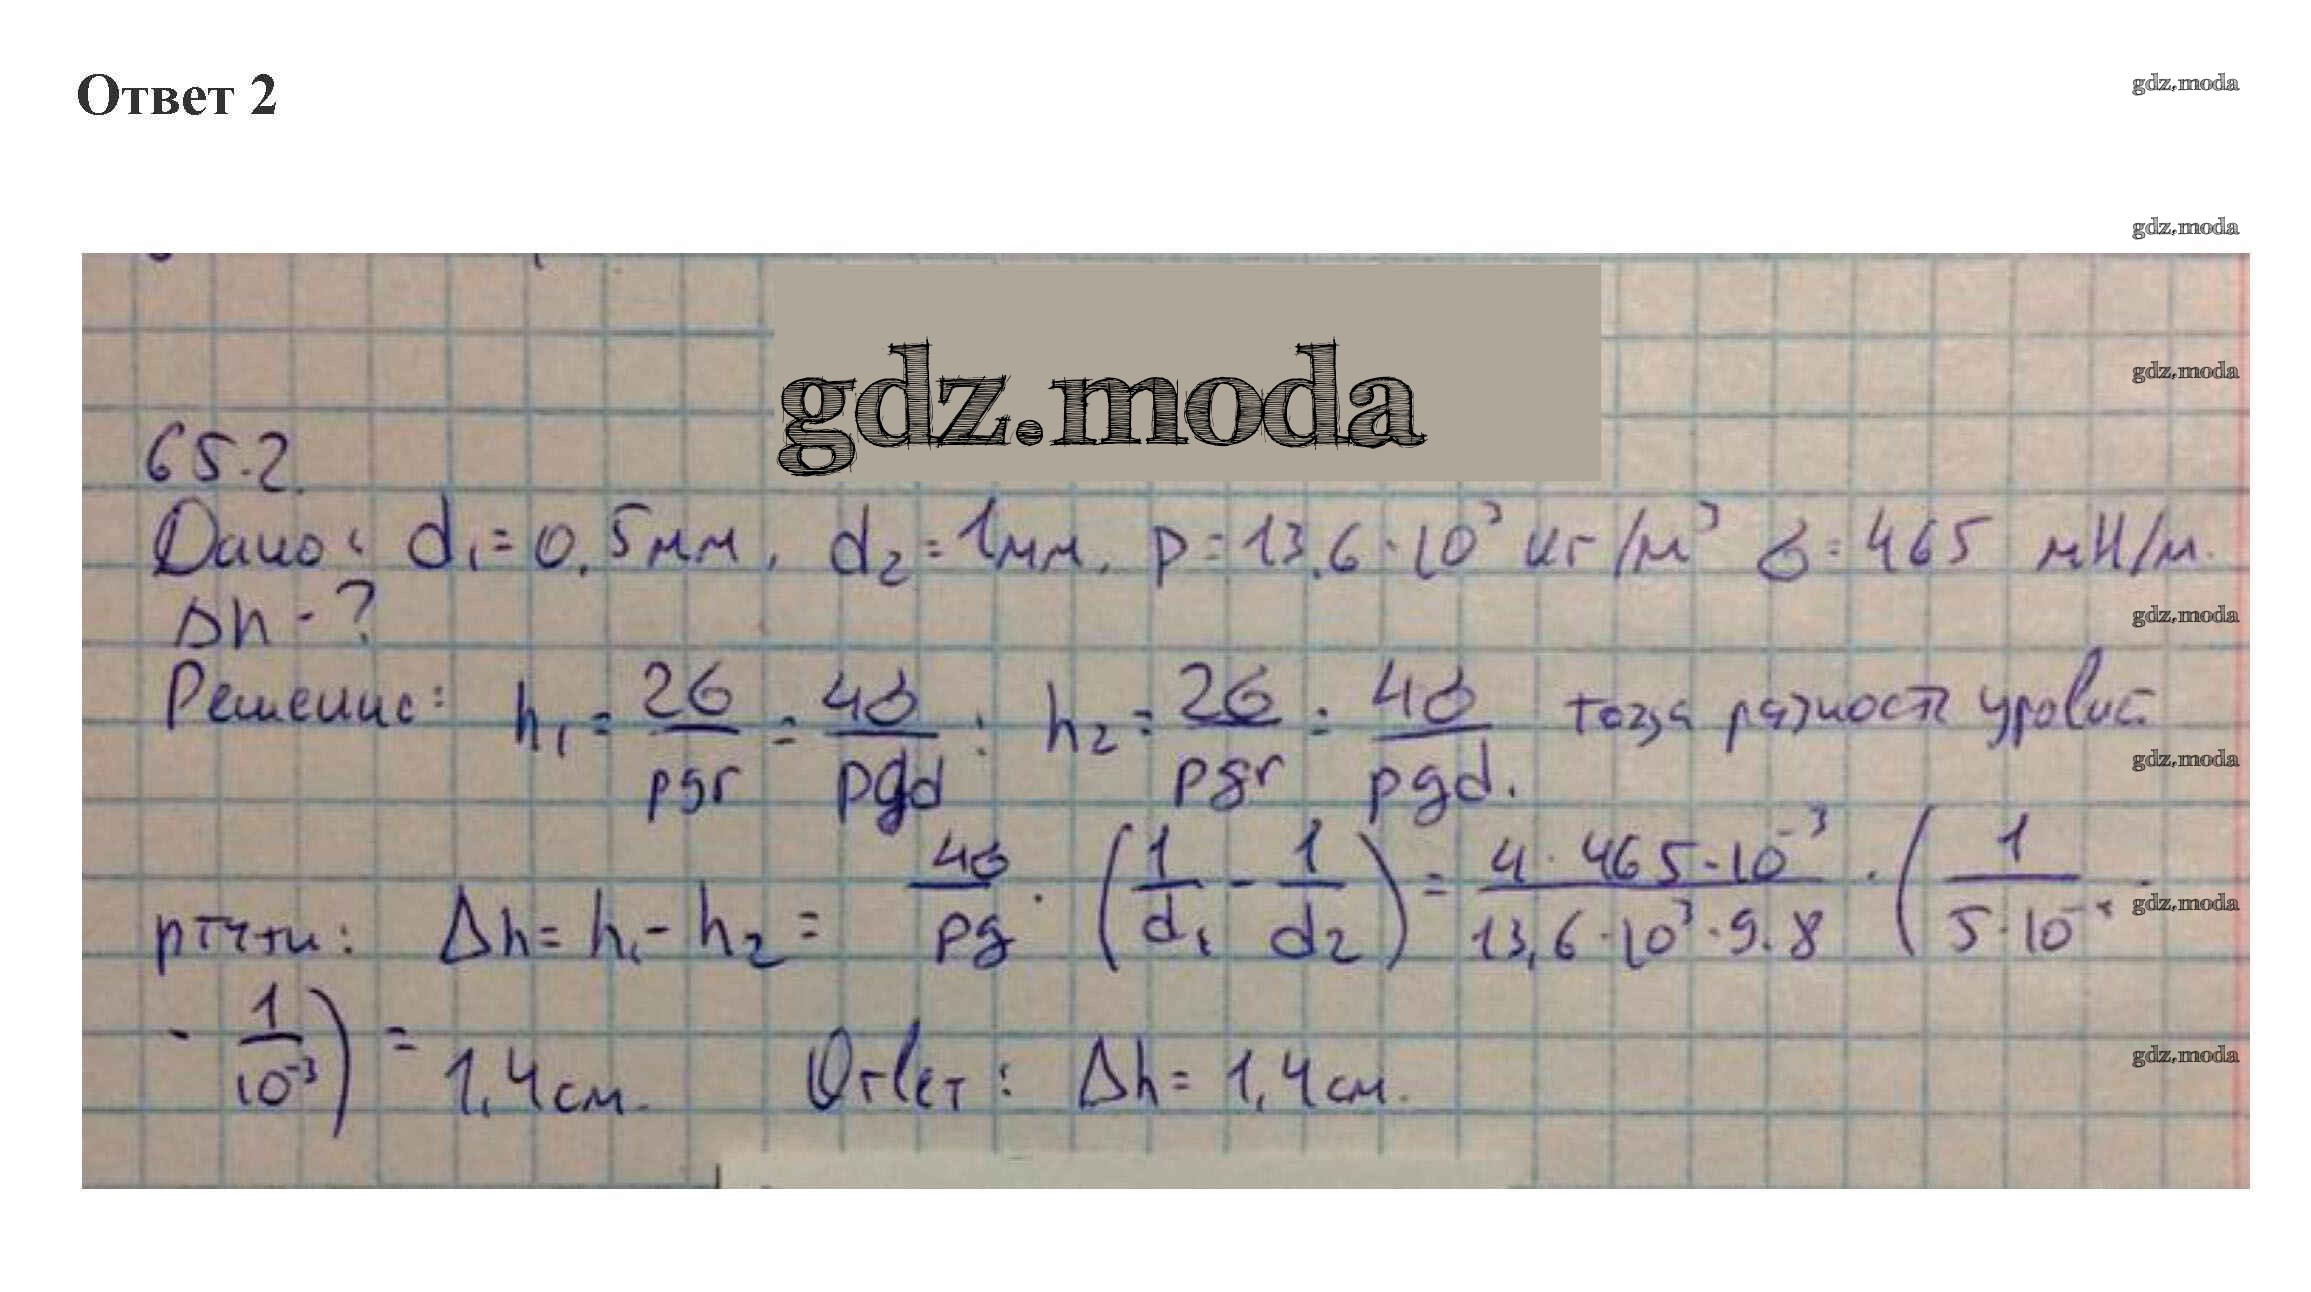 Ответ 2
gdz.moda
gdz.moda
gdz.moda
gdz.moda
65.2.
Дано: d₁ = 0.5 мм, d₂ = 1 мм, ρ = 13,6·10³ кг/м³ σ = 465 мН/м.
gdz.moda
Δh - ?
Решение: h₁ = 2σ/ρgr = 4σ/ρgd ; h₂ = 2σ/ρgr = 4σ/ρgd. тогда разность
gdz.moda
ртути: Δh = h₁ - h₂ = 4σ/ρg · (1/d₁ - 1/d₂) = 4·465·10⁻³/13,6·10³·9.8 · (1/5·10⁻⁴ -
gdz.moda
- 1/10⁻³) = 1,4 см. Ответ: Δh = 1,4 см.
gdz.moda